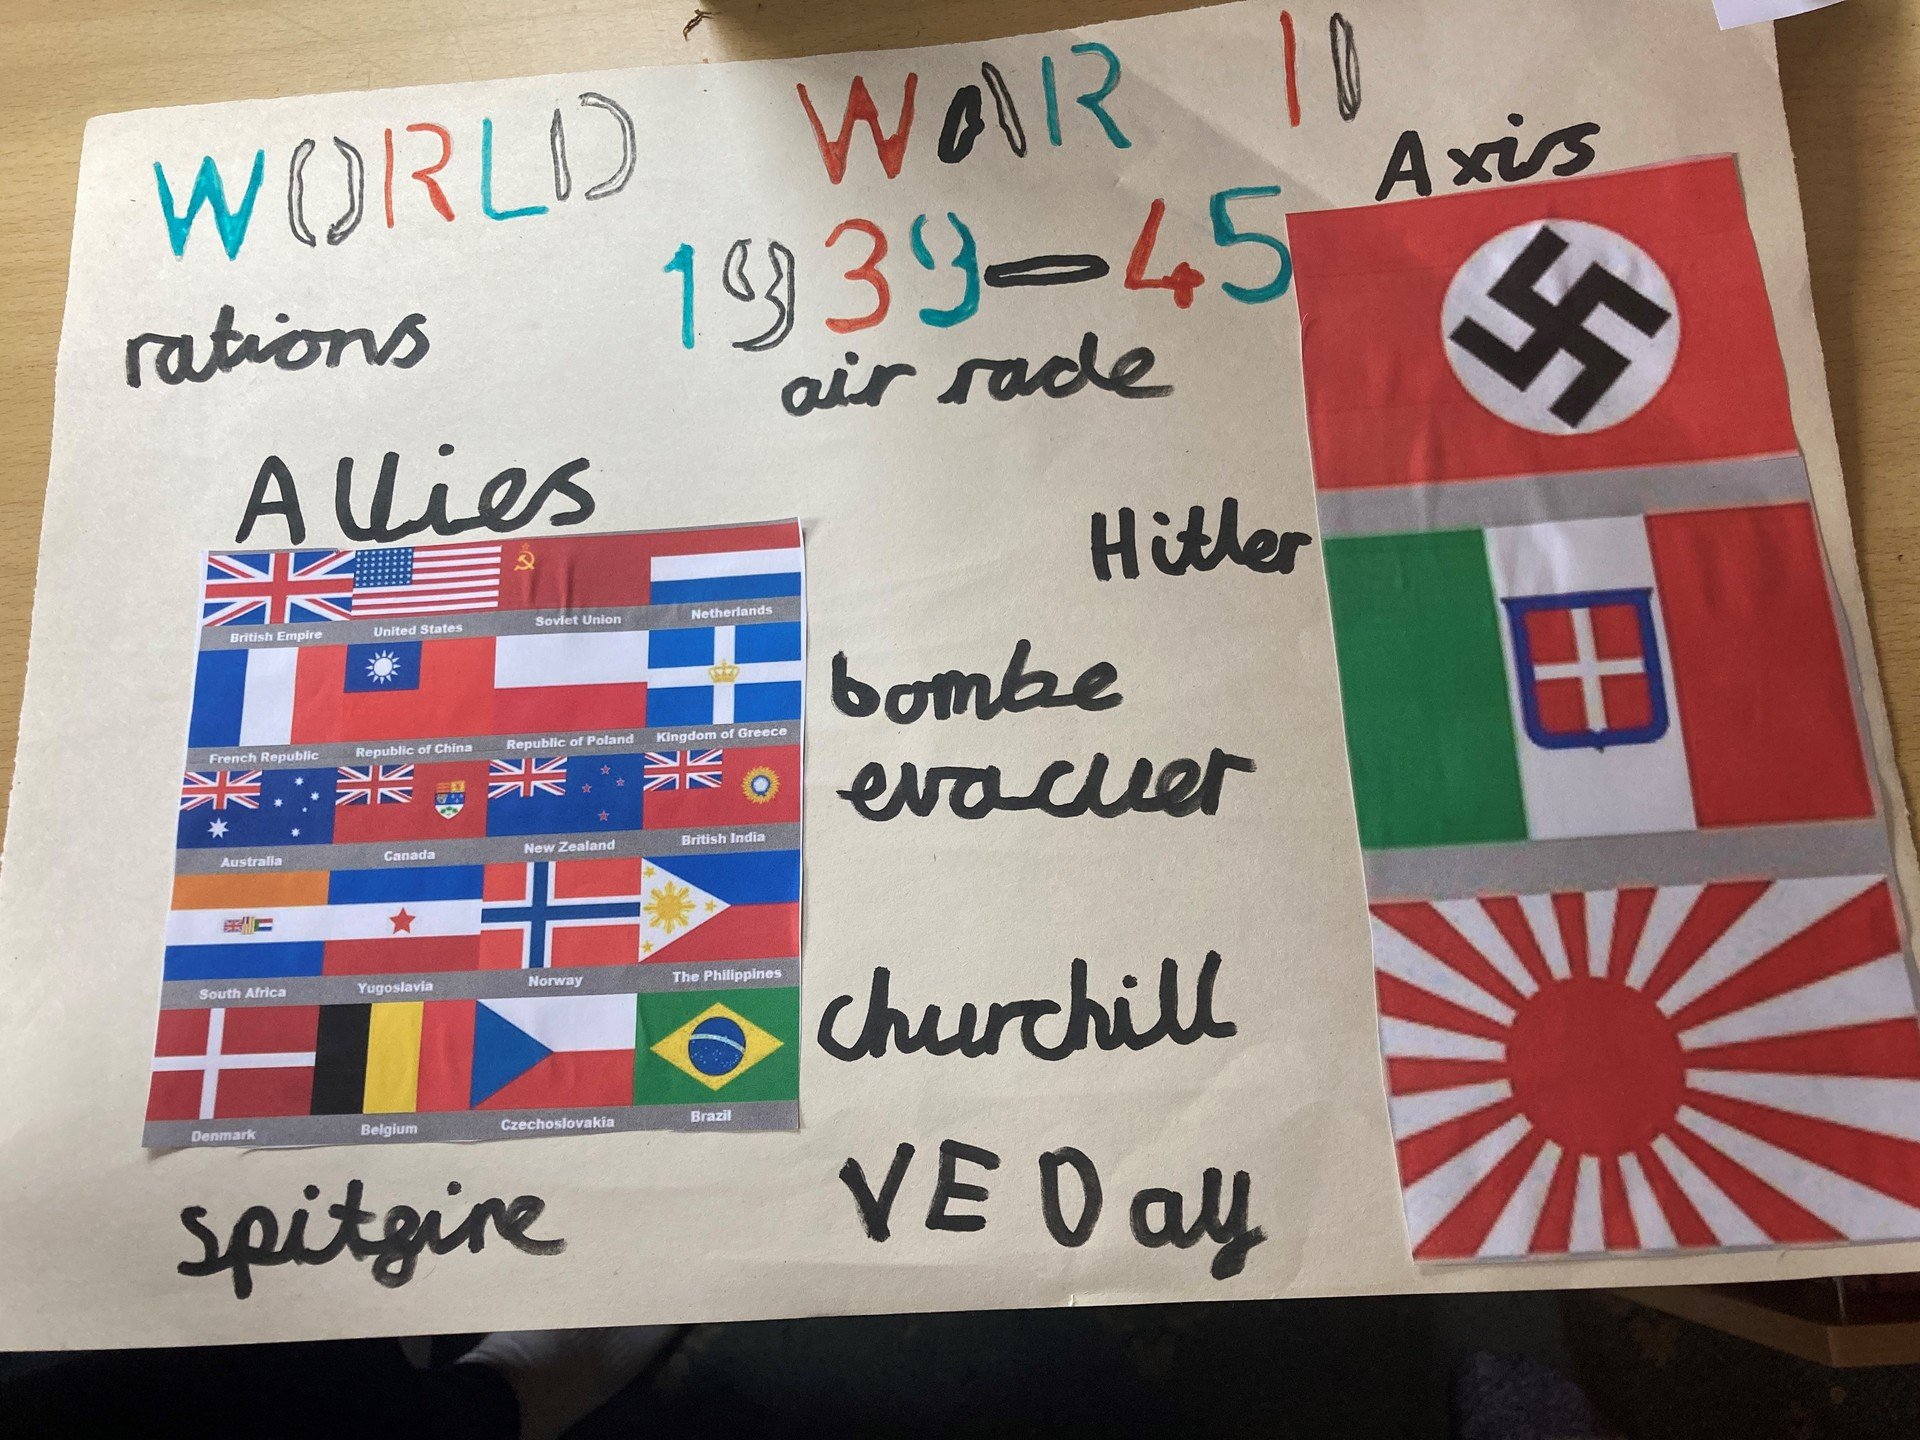 WORLD WAR II
1939-45
Axis
rations
air rade
Allies
Hitler
British Empire United States Soviet Union Netherlands
French Republic Republic of China Republic of Poland Kingdom of Greece
Australia Canada New Zealand British India
South Africa Yugoslavia Norway The Philippines
Denmark Belgium Czechoslovakia Brazil
bombe
evacuer
churchill
spitgire
VE Day